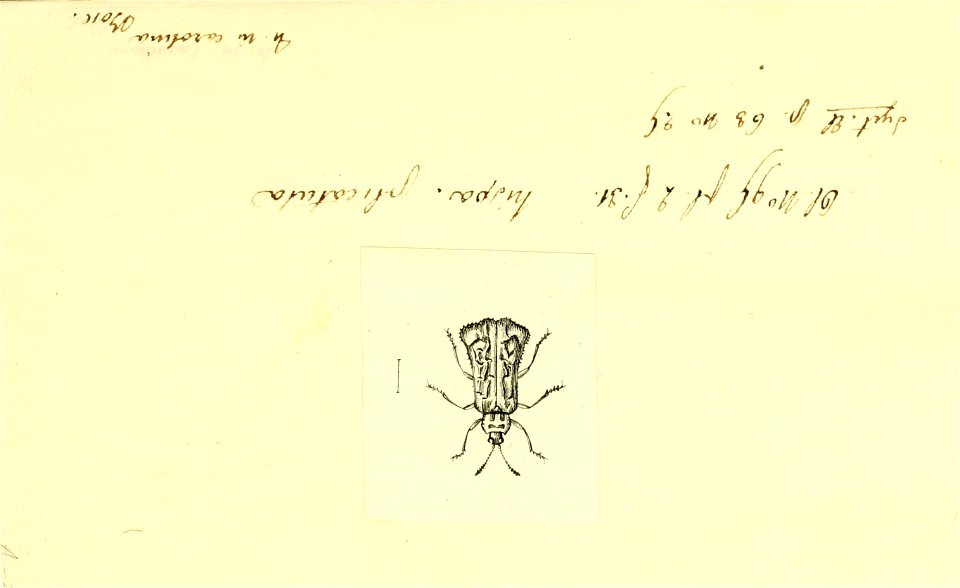 Ol. No 95 pl. 2 f. 31. hispa. plicatula
Syst. El p. 63 no 25
h. in carolina
Bosc.